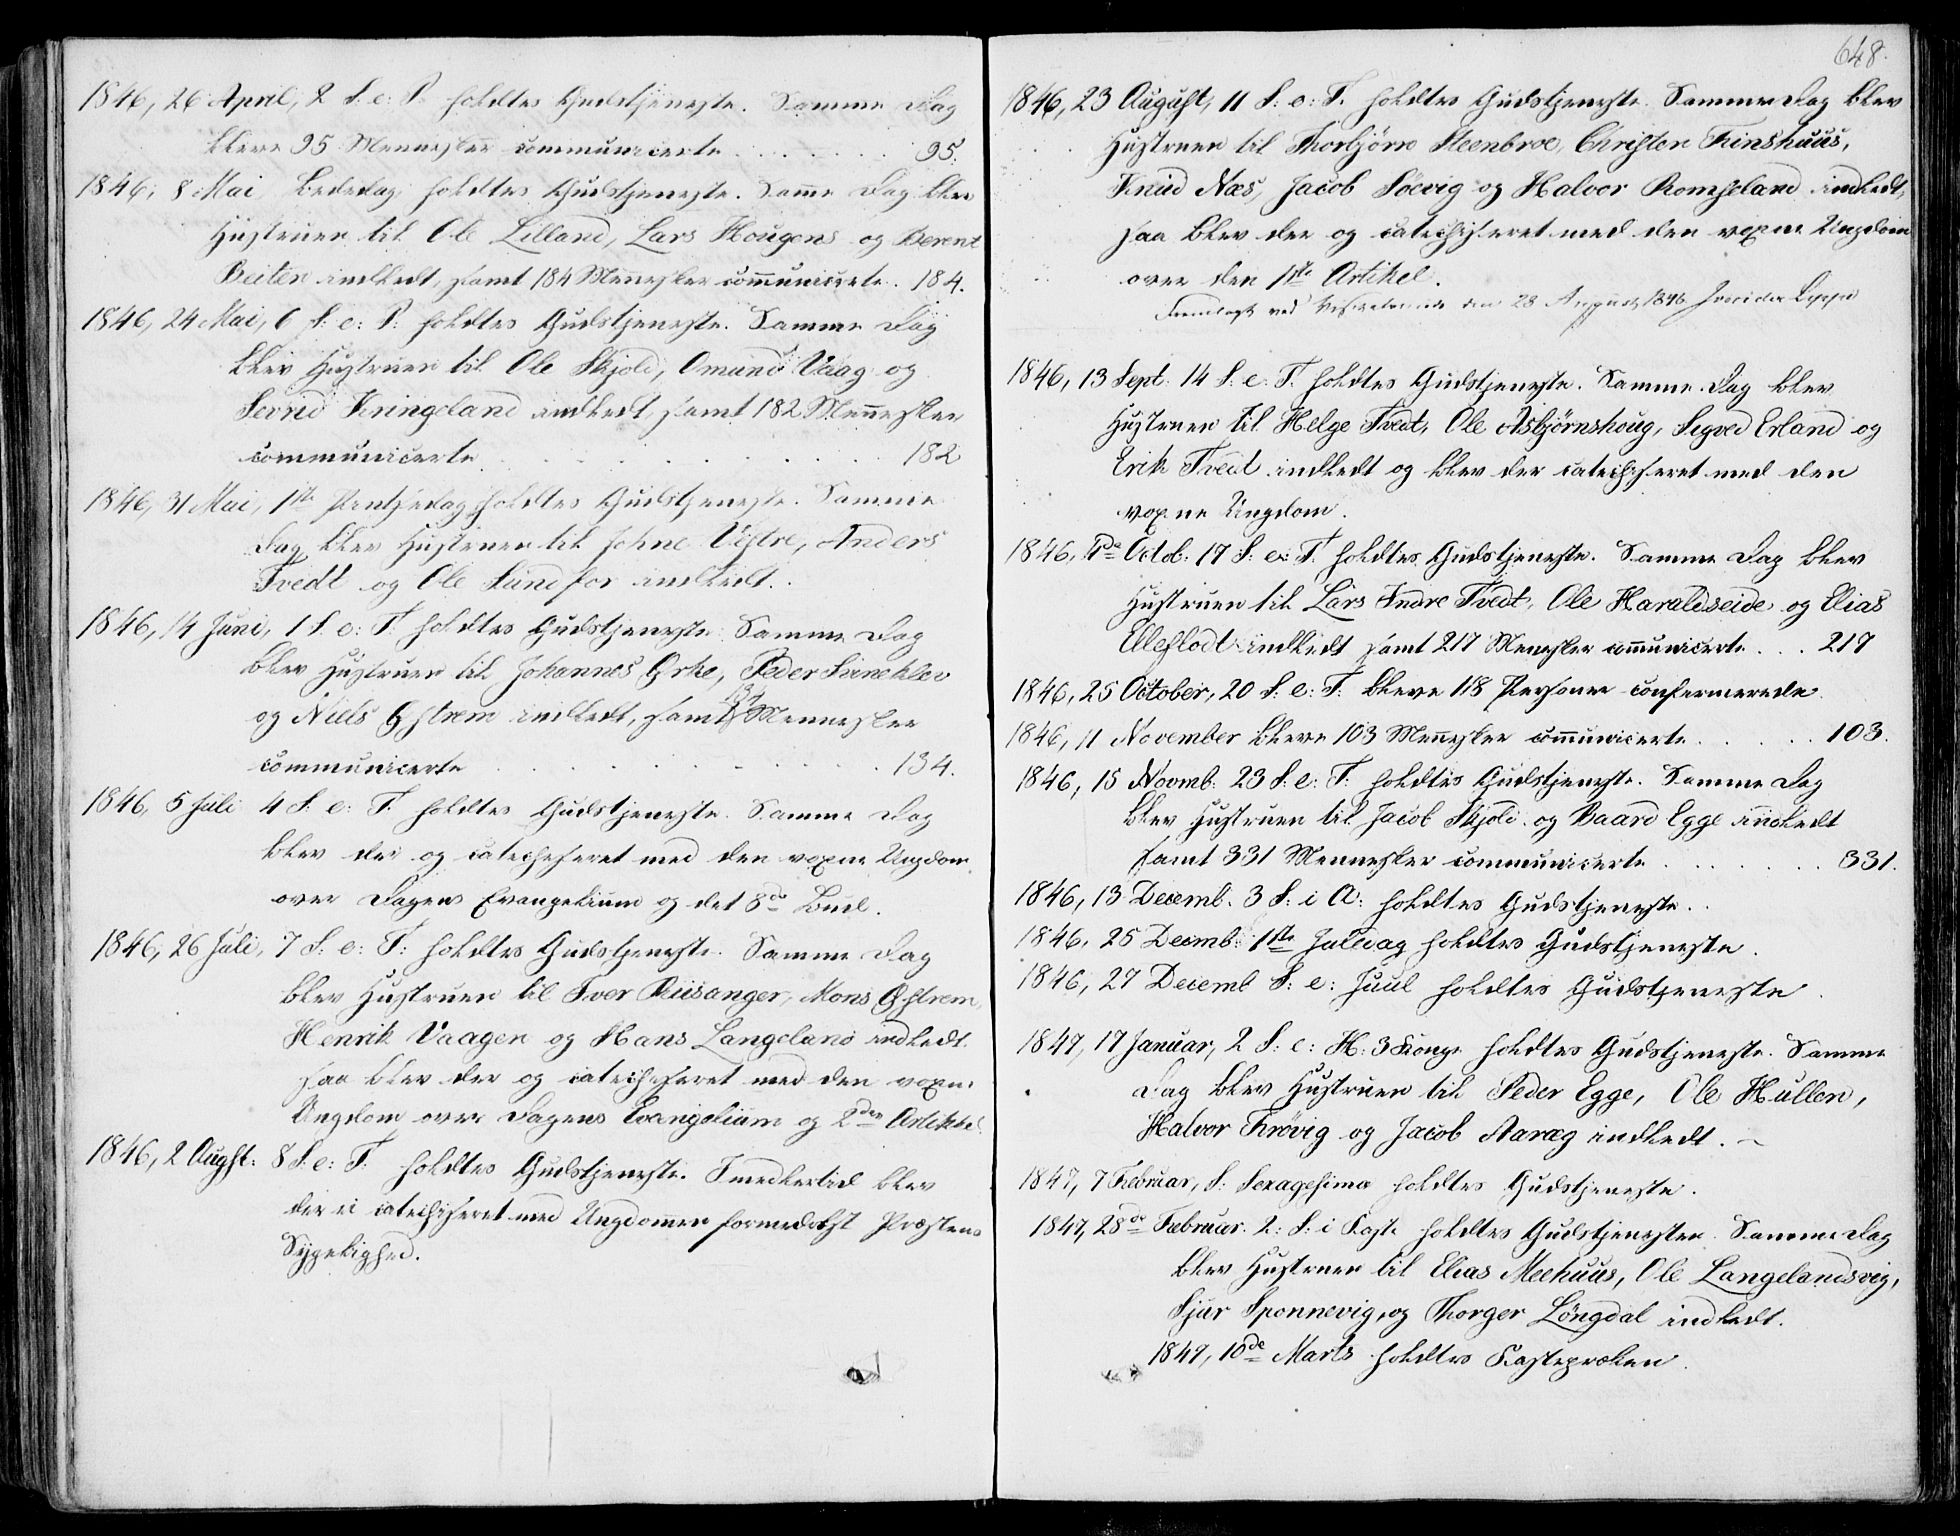 1846, 26 April, 2 S. e. P. holdtes Gudstjeneste. Samme Dag
bleve 95 Mennesker communicerte . . . . . . 95.
1846, 8 Mai Bededag holdtes Gudstjeneste. Samme Dag blev
Hustruen til Ole Lilland, Lars Hougens og Berent
Beiten indledt, samt 184 Mennesker communicerte. 184.
1846, 24 Mai, 6 S. e: P: holdtes Gudstjeneste. Samme Dag
blev Hustruen til Ole Skjold, Omund Vaag og
Sevrid Kringeland indledt, samt 182 Mennesker
communicerte . . . . . . 182
1846, 31 Mai, 1ste Pintsedag holdtes Gudstjeneste. Samme
Dag blev Hustruen til Johne Vestre, Anders
Tvedt og Ole Sundfor indledt.
1846, 14 Juni, 1 S. e: T. holdtes Gudstjeneste. Samme Dag
blev Hustruen til Johannes Ørke, Peder
og Niels Østrem indledt, samt 134 Mennesker
communicerte . . . . . . 134.
1846, 5 Juli 4 S. e: T. holdtes Gudstjeneste. Samme Dag
blev der og catechiseret med den voxne Ungdom
over Dagens Evangelium og det 8de Bud.
1846, 26 Juli, 7 S. e: T: holdtes Gudstjeneste. Samme Dag
blev Hustruen til Iver Riisanger, Mons Østrem,
Henrik Vaagen og Hans Langeland indledt
saa blev der og catechiseret med den voxne
Ungdom over Dagens Evangelium og 2den Artikkel.
1846, 2 Augst: 8 S. e: T. holdtes Gudstjeneste. Imidlertid blev
der ei catechiseret med Ungdommen formedelst Præstens
Sygelighed.
648.
1846, 23 August, 11 S: e: T. holdtes Gudstjeneste. Samme Dag blev
Hustruen til Thorbjörn Steenbroe, Christen Finshuus,
Knud Næs, Jacob Söevig og Halvor Romseland indledt,
saa blev der og catechiseret med den voxne Ungdom
over den 1ste Artikel.
Fremlagt ved Visitatsen den 28 August 1846.
1846, 13 Sept: 14 S. e: T. holdtes Gudstjeneste. Samme Dag blev
Hustruen til Helge Tvedt, Ole Asbjörnshoug, Sigved Erland og
Erik Tvedt indledt og blev der catechiseret med den
voxne Ungdom.
1846, 4de Octob: 17 S: e: T. holdtes Gudstjeneste. Samme Dag blev
Hustruen til Lars Indre Tvedt, Ole Haraldseide og Elias
Elleflodt indledt samt 217 Mennesker communicerte . . . 217
1846, 25 October, 20 S: e: T: bleve 118 Personer confermerede
1846, 11 November bleve 103 Mennesker communicerte . . . . 103.
1846, 15 Novmb: 23 S. e: T: holdtes Gudstjeneste. Samme Dag
blev Hustruen til Jacob Skjold og Baard Egge indledt
samt 331 Mennesker communicerte . . . . . 331.
1846, 13 Decemb. 3 S: i A: holdtes Gudstjeneste.
1846, 25 Decmb: 1ste Juledag holdtes Gudstjeneste.
1846, 27 Decemb S: e: Juul holdtes Gudstjeneste.
1847, 17 Januar, 2 S: e: H: 3 Konge holdtes Gudstjeneste. Samme
Dag blev Hustruen til Peder Egge, Ole Hullen,
Halvor Frövig og Jacob Aaræg indledt.
1847, 7 Februar, S: Sexagesima holdtes Gudstjeneste.
1847, 28de Februar. 2: S: i Faste holdtes Gudstjenesten. Samme Dag
blev Hustruen til Elias Meehuus, Ole Langelandsvig,
Sjur Sponnevig, og Thorger Löngdal indledt.
1847, 10de Marts holdtes Fasteprœken.